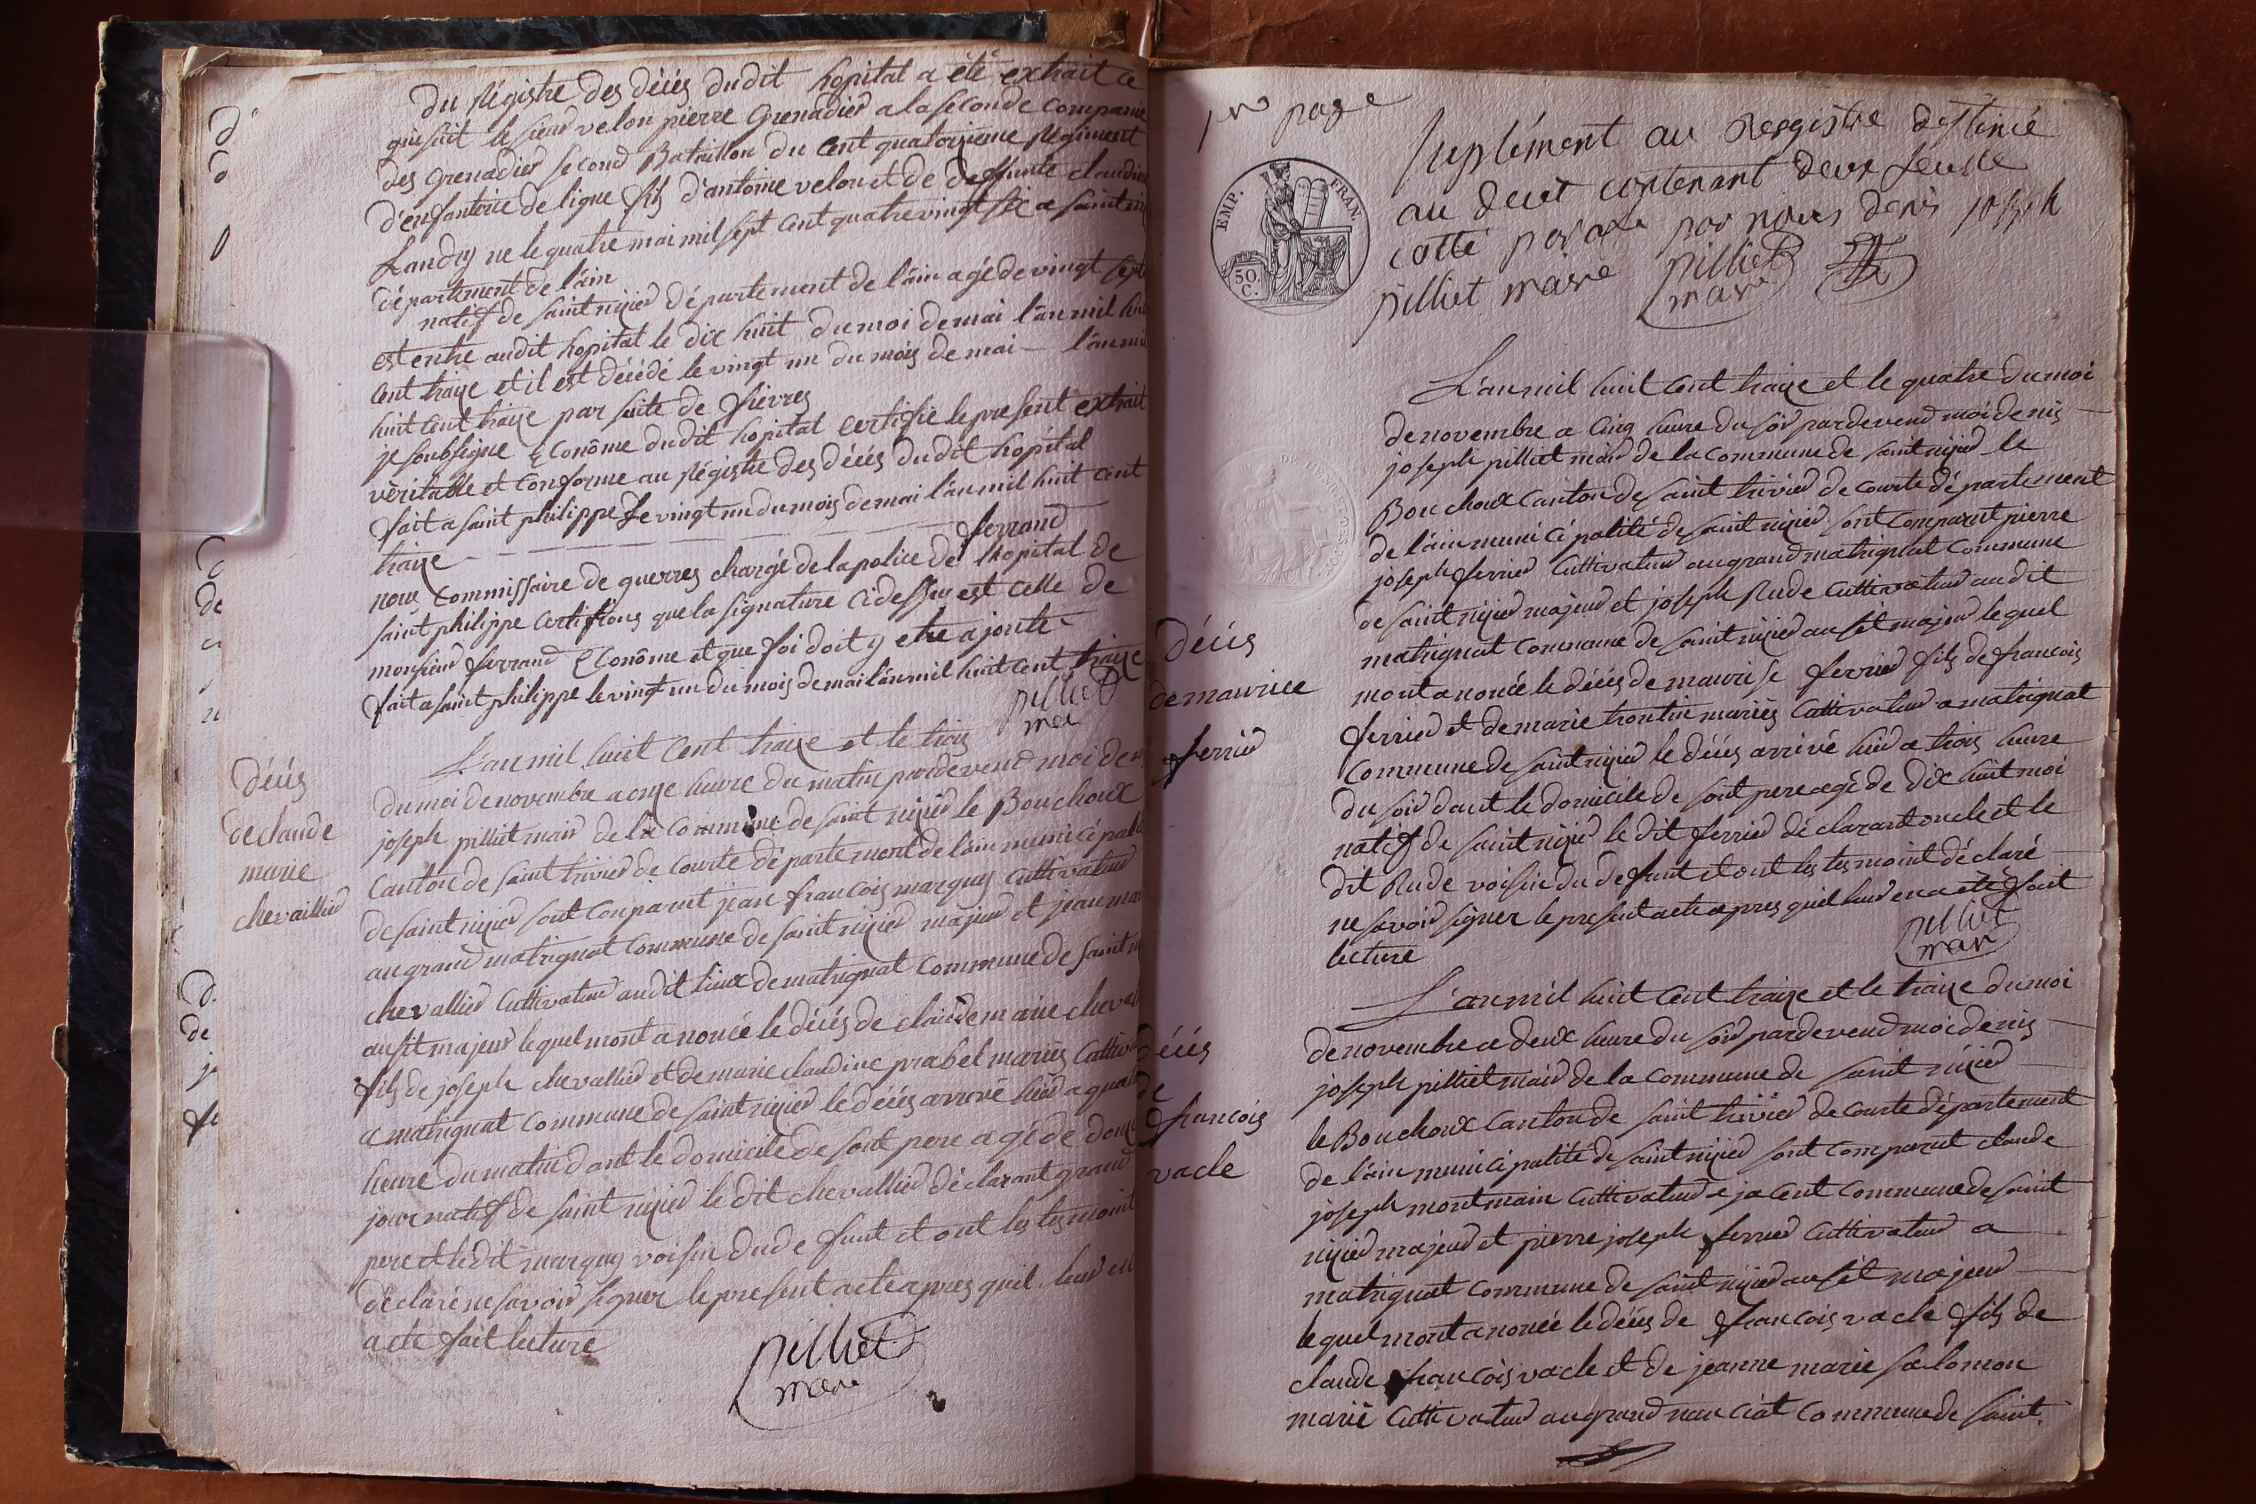 du régistre des décés dudit hopital a été extrait ce
qui suit le sieur velon pierre Grenadier a la seconde companie
des Grenadier second Bataillon du Cent quatorzieme Régiment
d'enfanterie de ligne fils d'antoine velon et de deffunte claudine
Landry ne le quatre mai mil sept cent quatre vingt six a saint
département de l'ain
natif de saint nizier département de l'ain agé de vingt sept
est entre audit hopital le dix huit du moi de mai l'an mil huit
cent traize et il est décédé le vingt un du mois de mai — l'an mil
huit cent traize par suite de fievres
je soubsigne Econôme dudit hopital certifie le present extrait
vèritable et conforme au Régistre des décés dudit hopital
fait a saint philippe le vingt un du mois de mai l'an mil huit cent
traize — ferrand
nous commissaire de guerres chargé de la police de l'hopital de
saint philippe certifions que la signature ci dessus est celle de
monsieur ferrand Econôme et que foi doit y etre ajoute
fait a saint philippe le vingt un du mois de mai l'an mil huit cent traize
pilliet
mai
décés
de claude
marie
chevaillier
L'an mil huit cent traize et le trois
du moi de novembre a onze heure du matin pardevend moi denis
joseph pilliet mair de la commune de saint nizier le Bouchoux
canton de saint trivier de courte département de l'ain municipalité
de saint nizier sont comparut jean francois marguy cultivateur
au grand matrignat commune de saint nizier majeur et jean marie
chevallier cultivateur audit lieux de matrignat commune de saint
ausit majeur lequel mont anoncé le décés de claude marie chevallier
fils de joseph chevallier et de marie claudine prabel mariés cultivateur
a matrignat commune de saint nizier le décés arrivé hier a quatre
heure du matin dant le domicile de sont pere agé de douze
jour natif de saint nizier le dit chevallier déclarant grand
pere et ledit marguy voisin du defunt et ont les tesmoint
déclaré ne savoir signer le present acte apres quil leur en
a été fait lecture
pilliet
maire
1re page
EMP. FRAN.
50
C.
suplément au Resgistre destiné
au decet contenant deux feulle
cotté parafé par nous denis joseph
pilliet maire pilliet
maire
L'an mil huit cent traize et le quatre du moi
de novembre a cinq heure du soir pardevend moi denis
joseph pilliet mair de la commune de saint nizier le
Bouchoux canton de saint trivier de courte département
de l'ain municipalité de saint nizier sont comparut pierre
joseph ferrier cultivateur au grand matrignat commune
de saint nizier majeur et joseph Rude cultivateur audit
matrignat commune de saint nizier ausit majeur lequel
mont anoncé le décés de maurise ferrier fils de francois
ferrier et de marie trontin mariés cultivateur a matrignat
commune de saint nizier le décés arrivé hier a trois heure
du soir dant le domicile de sont pere agé de dix huit moi
natif de saint nizier le dit ferrier déclarant oncle et le
dit Rude voisin du defunt et ont les tesmoint déclaré
ne savoir signer le present acte apres quil leur en a été fait
lecture
pilliet
mair
décés
de maurice
ferrier
L'an mil huit cent traize et le traize du moi
de novembre a deux heure du soir pardevend moi denis
joseph pilliet mair de la commune de saint nizier
le Bouchoux canton de saint trivier de courte département
de l'ain municipalité de saint nizier sont comparut claude
joseph montmain cultivateur a jacent commune de saint
nizier majeur et pierre joseph ferrier cultivateur a
matrignat commune de saint nizier ausit majeur
lequel mont anoncé le décés de francois vacle fils de
claude francois vacle et de jeanne marie salomon
marié cultivateur au grand nanciat commune de saint
décés
de
francois
vacle